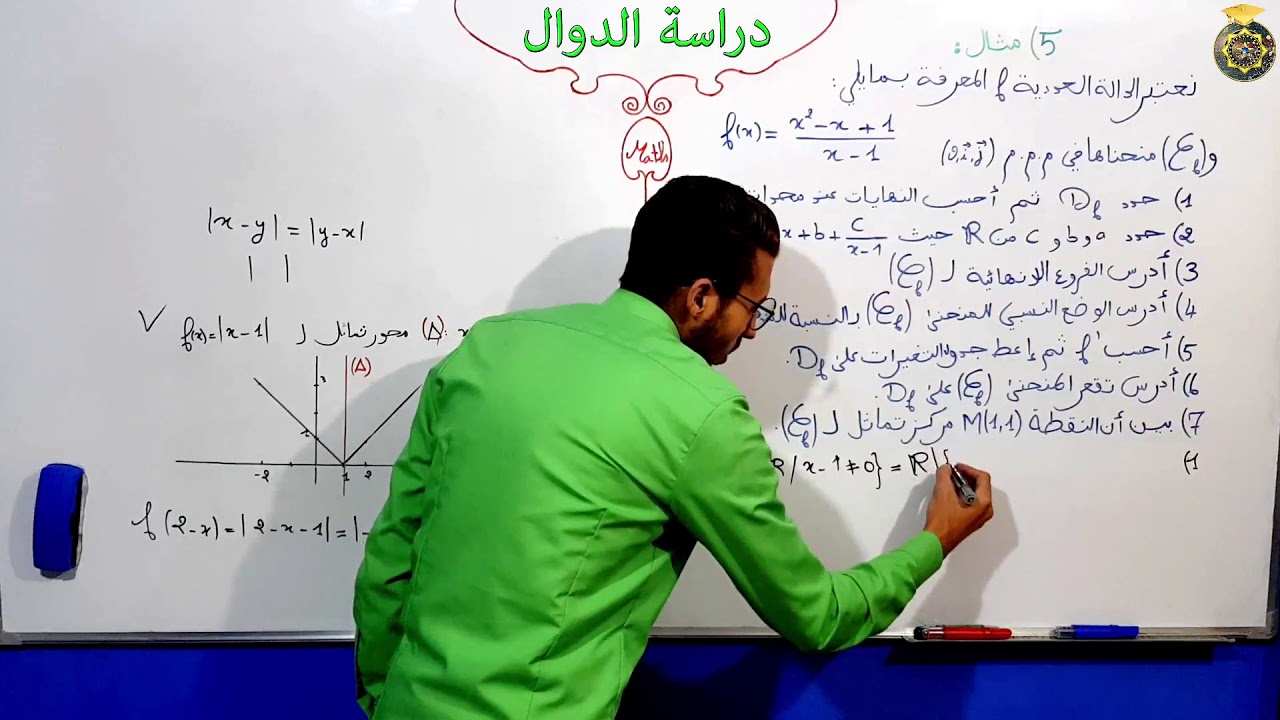 دراسة الدوال
Maths
5) مثال:
نعتبر الدالة العددية f المعرفة بمايلي:
f(x) = (x² - x + 1)/(x - 1)
و(C_f) منحناها في م.م.م (o, i⃗, j⃗)
1) حدد D_f ثم أحسب النهايات عند محدات
2) حدد a و b و c من R حيث x + b + c/(x-1)
3) أدرس الفروع اللانهائية لـ (C_f)
4) أدرس الوضع النسبي للمنحنى (C_f) بالنسبة
5) أحسب f' ثم إعط جدول التغيرات على D_f.
6) أدرس تقعر المنحنى (C_f) على D_f.
7) بين أن النقطة M(1,1) مركز تماثل لـ (C_f).
1) R / x - 1 ≠ 0} = R \ {
|x - y| = |y - x|
| |
✓ f(x) = |x - 1| محور تماثل لـ (Δ):
(Δ)
3
1
-2 1 2
f(2 - x) = |2 - x - 1| = |-